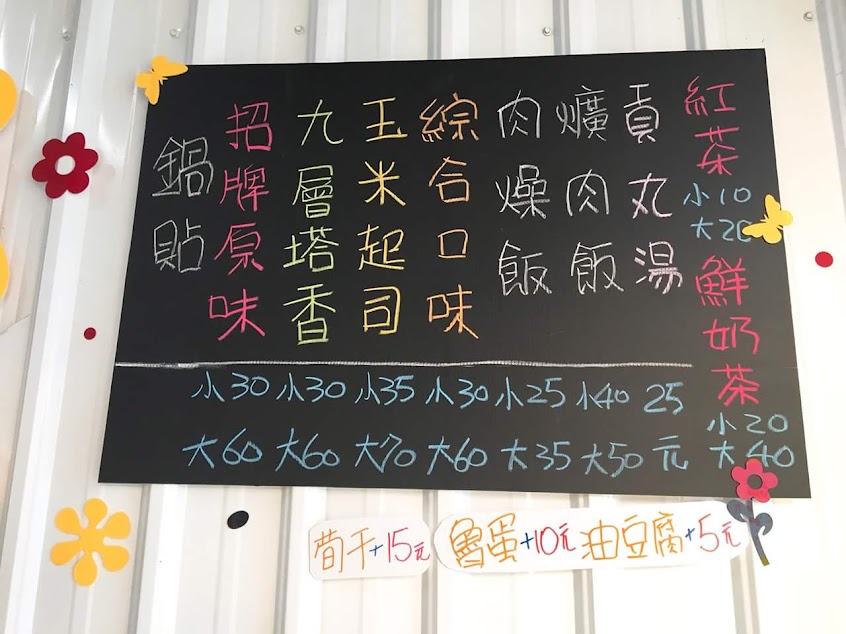 鍋貼
招牌原味
九層塔香
玉米起司
綜合口味
肉燥飯
爌肉飯
貢丸湯
小30 小30 小35 小30 小25 小40 25
大60 大60 大70 大60 大35 大50 元
紅茶
小10
大20
鮮奶茶
小20
大40
荀干+15元
魯蛋+10元 油豆腐+5元